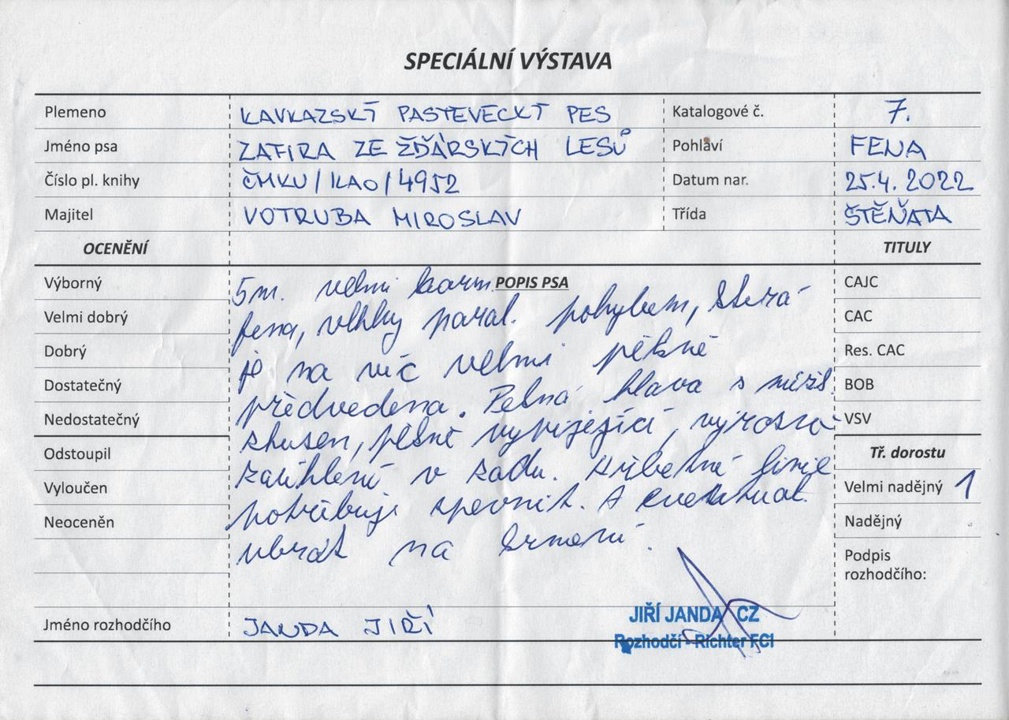 SPECIÁLNÍ VÝSTAVA
Plemeno KAVKAZSKÝ PASTEVECKÝ PES Katalogové č. 7.
Jméno psa ZAFIRA ZE ŽĎÁRSKÝCH LESŮ Pohlaví FENA
Číslo pl. knihy ČMKU/KAO/4952 Datum nar. 25.4. 2022
Majitel VOTRUBA MIROSLAV Třída ŠTĚŇATA
OCENĚNÍ TITULY
Výborný
Velmi dobrý
Dobrý
Dostatečný
Nedostatečný
Odstoupil
Vyloučen
Neoceněn
POPIS PSA
5m. velmi harm.
fena, paral. pohybem, která
je na víc velmi pěkně
předvedena. Pěkná hlava s
skusem, pěkně vyvíjející,
zaúhlení v zadu. Hřbetní linie
potřebuje zpevnit. A eventual.
ubrat na krmení.
CAJC
CAC
Res. CAC
BOB
VSV
Tř. dorostu
Velmi nadějný 1
Nadějný
Podpis
rozhodčího:
Jméno rozhodčího JANDA JIŘÍ
JIŘÍ JANDA CZ
Rozhodčí - Richter FCI